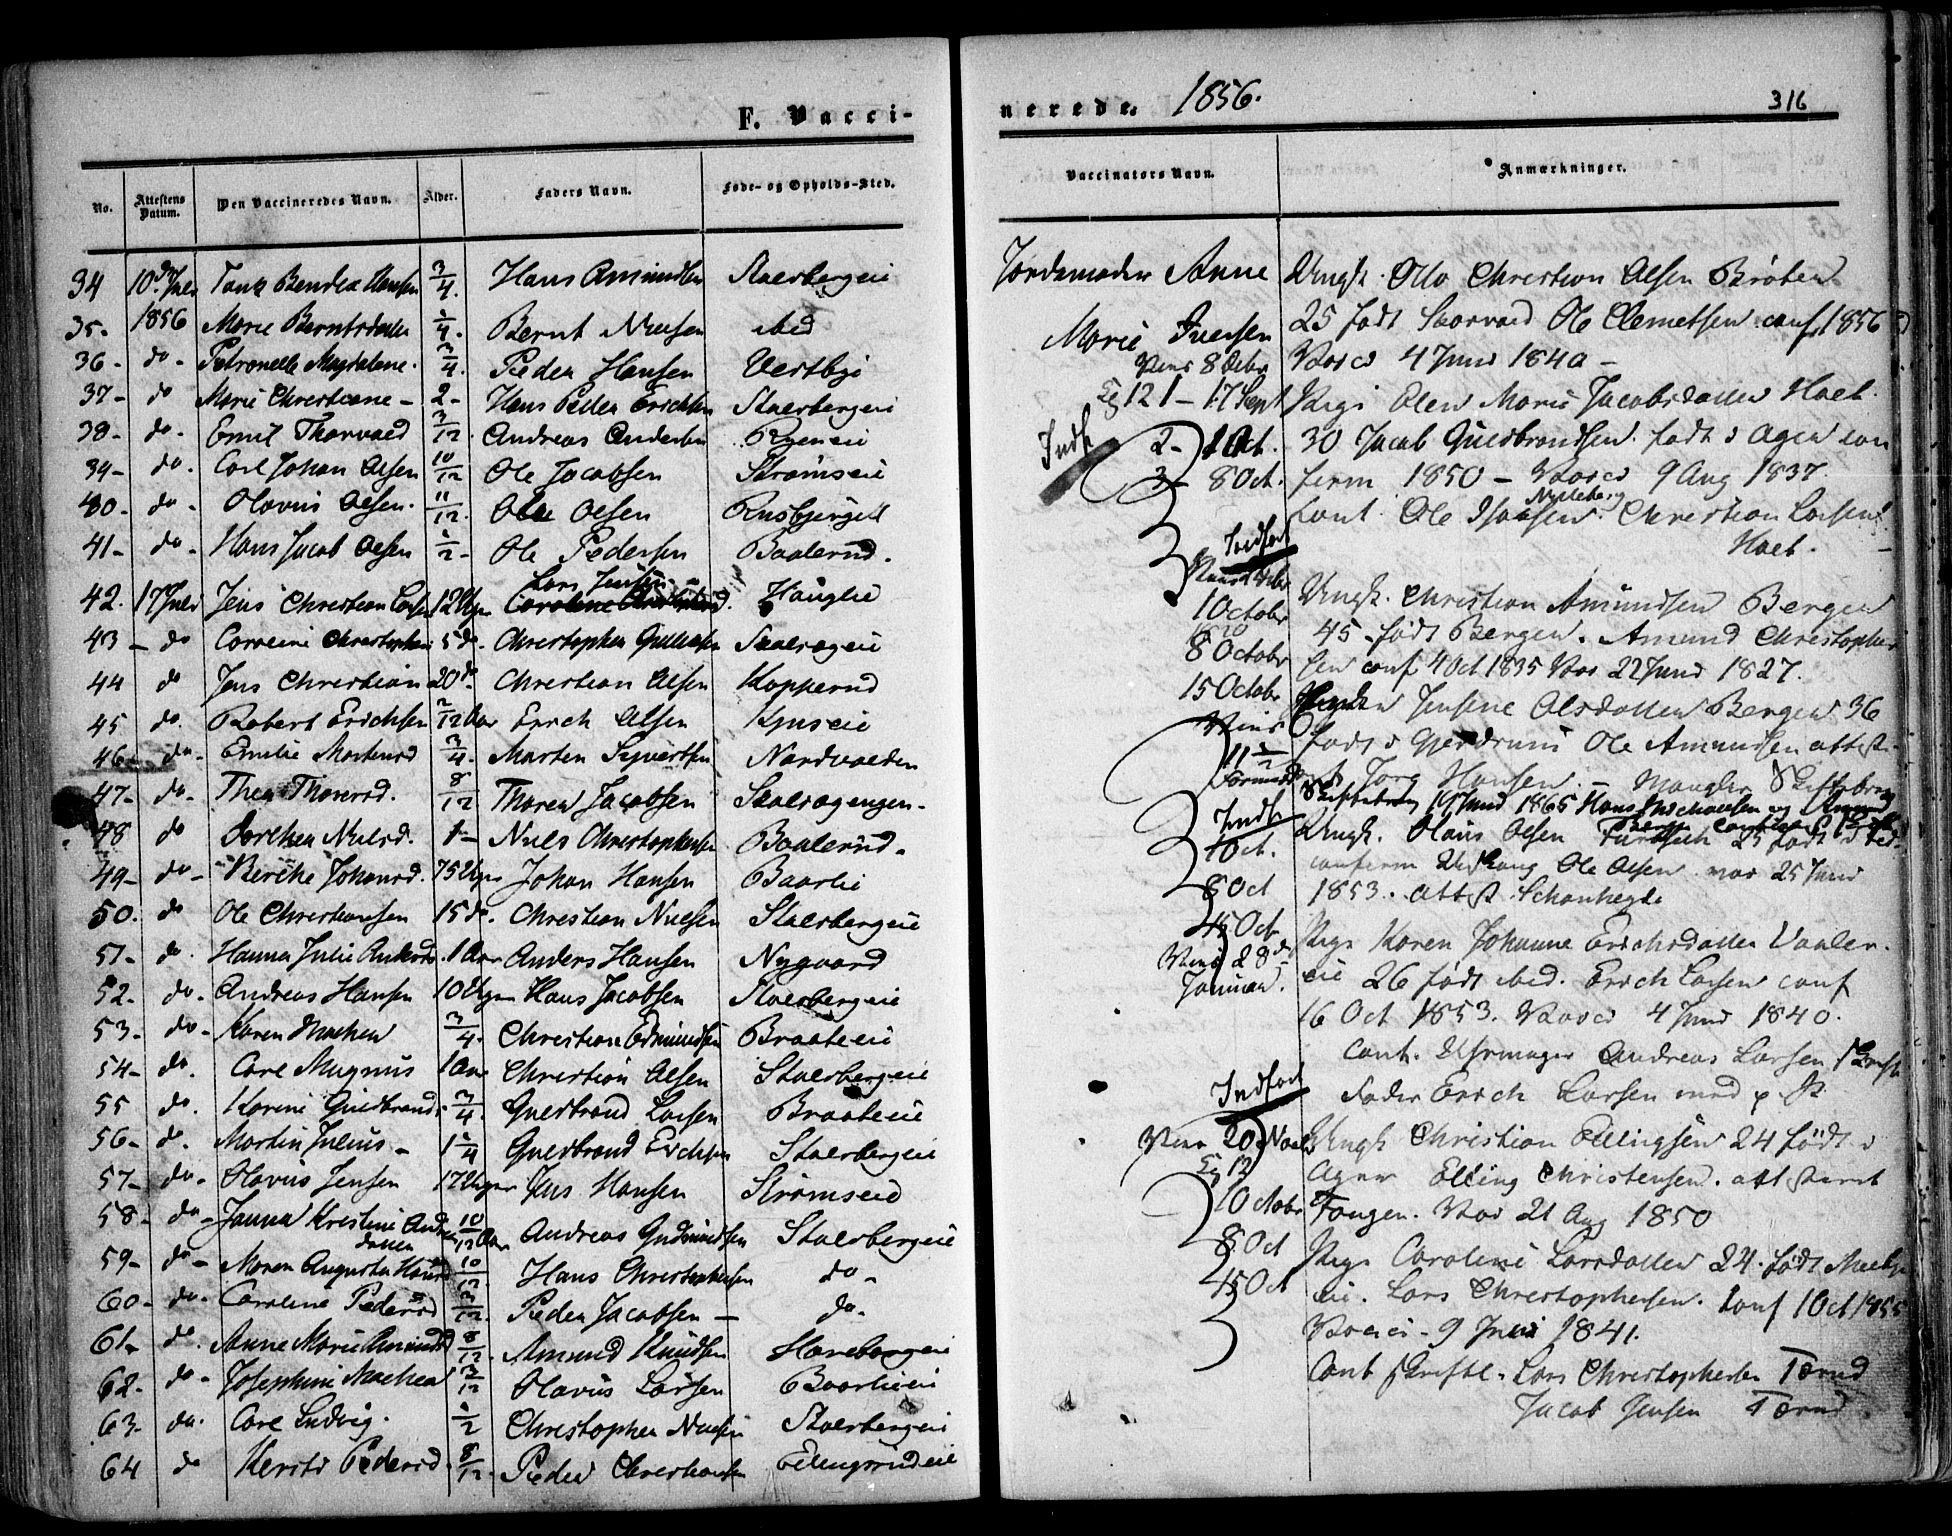 F. Vacci-
No. Attestens Datum. Den Vaccineredes Navn. Alder. Faders Navn. Føde- og Opholds-Sted.
34 10de Juli Hansen 3/4. Hans Amundsen Stalsbergeie
35- 1856 Marie Berntsdatter 1/4. Bernt Nielsen ibid
36- do- Petronelle Magdalene- 3/4. Peder Hansen Vestbye
37- do Marie Christiane- 2- Hans Peder Erichsen Stalsbergeie
38- do- Emil Thorvald 3/12 Andreas Andersen Ryeneie
39- do. Carl Johan Olsen 10/12 Ole Jacobsen Strømseie
40- do- Olavus Olsen. 11/12. Ole Olsen
41- do- Hans Jacob Olsen 1/2- Ole Pedersen Baalerud.
42. 17 Juli Jens Christian Larsen 12 Uger Lars Jensen Hauglie
43- do Christophersen 5 do. Christopher
44 do Jens Christian 20 do. Christian Olsen Kopperud
45 do. Robert Erichsen 2/12 Aar Erich Olsen Kynseie
46- do- Emilie Martensd 3/4. Marten Syvertsen Nordvolden
47- do- Thea Thorersd. 8/12 Thorer Jacobsen
48 do Dorthea Nielsd. 1- Niels Christophersen Baalerud-
49- do- Berthe Johansd. 75 Uger Johan Hansen Baarlie
50. do Ole Christiansen 15 do. Christian Nielsen Stalsbergeie
51- do. Hanna Julie Andersd. 1 Aar Anders Hansen Nygaard
52- do. Andreas Hansen 10 Uger Hans Jacobsen Stalsbergeie
53- do- Karen Mathea 3/4. Christian Edmundsen Braateeie
54- do. Carl Magnus 1 Aar Christian Olsen Stalsbergeie
55 do. Karine Gulbrandsd. 3/4. Gulbrand Larsen Braateeie
56- d. Martin Julius- 1 1/4 Gulbrand Erichsen Stalsbergeie
57- do- Olavus Jensen 17 Uger Jens Hansen Strømseie
58- do- Janna Kristine Andreasdatter 10/12 Aar Andreas Gudmundsen Stalsbergeie
59- do- Maren Augusta Hansd 10/12. Hans Christophersen do-
60- do- Caroline Pedersd 3/12. Peder Jacobsen- do-
61- do. Anne Marie Amundsd 8/12. Amund Knudsen Hareborgeie
62- do- Josephine Mathea 13/12 Olavus Larsen Baarlieeie
63- do. Carl Ludvig. 1/2 Christopher Nielsen Stalsbergeie
64 do Kersti Pedersd. 8/12. Peder Christiansen Ellingsrudeie
nerede. 1856. 316
Vaccinators Navn. Anmærkninger.
Jordemoder Anne
Marie Iversen
8 Octbr
12 1- 17 Sept
Indf
2- 1 Oct.
3- 8 Oct.
Indført
1 Octobr
8 Octobr
15 Octobr
11 1/2
Formidd
Indf
1 Oct.
8 Oct
15 Oct
28de
Januar.
Indført
20 Novbr
12
1 Octobr
8 Oct
15 Oct
Ungk. Otto Christian Olsen Bråten
25 født Ole Clemetsen conf 1856
Vacc 4 Juni 1840-
Pige Olea Marie Jacobsdatter Holt.
30 Jacob Gulbrandsen. født i Ager con
firm 1850- Vacc 9 Aug 1837.
Caut. Ole Christian Larsen
Holt.-
Ungk. Christian Amundsen Bergen
45. født Bergen. Amund Christopher
sen conf 4 Oct 1835 Vac 22 Juni 1827.
Jensine Olsdatter Bergen 36
født i Gjerdrum Ole Amundsen attest
Jørg Hansen.- Mangler Skiftebrev
Skiftebrev 19 Juni 1865 Hans Michaelsen og
Ungk. Olaus Olsen Furuseth 25 født i
confirm Ole Olsen. vac 25 Juni
1853. attest. Schanhegde
Pige Karen Johanne Erichsdatter Vaaler-
eie 26 født ibid. Erich Larsen conf
16 Oct 1853. Vacc 4 Juni 1840.
Caut. Uhrmager Andreas Larsen
Fader Erich Larsen med p. P.
Ungk Christian Ellingsen 24 født i
Ager Elling Christensen. attesteret
Fangen. Vac 21 Aug 1850
Pige Caroline Larsdatter 24. født
eie. Lars Christophersen. Conf 1 Oct 1855
Vacc- 9 Juni 1841.
Caut skriftl. Lars Christophersen Tærud
Jacob Jensen Tærud